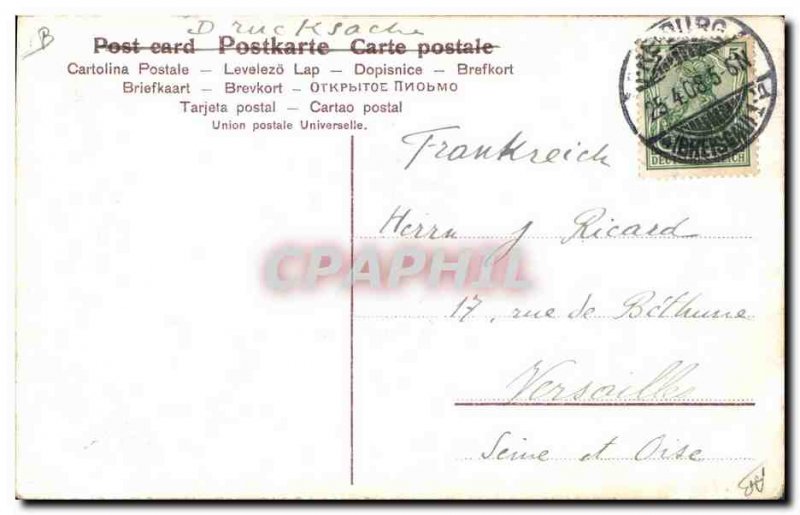 Drucksache
Post card Postkarte Carte postale
Cartolina Postale – Levelező Lap – Dopisnice – Brefkort
Briefkaart – Brevkort – ОТКРЫТОЕ ПИСЬМО
Tarjeta postal – Cartao postal
Union postale Universelle.
5
25.4.08.5-6N
DEUTSCHES REICH
Frankreich
Herrn J Ricard
CPAPHIL
17, rue de Béthune
Versailles
Seine et Oise